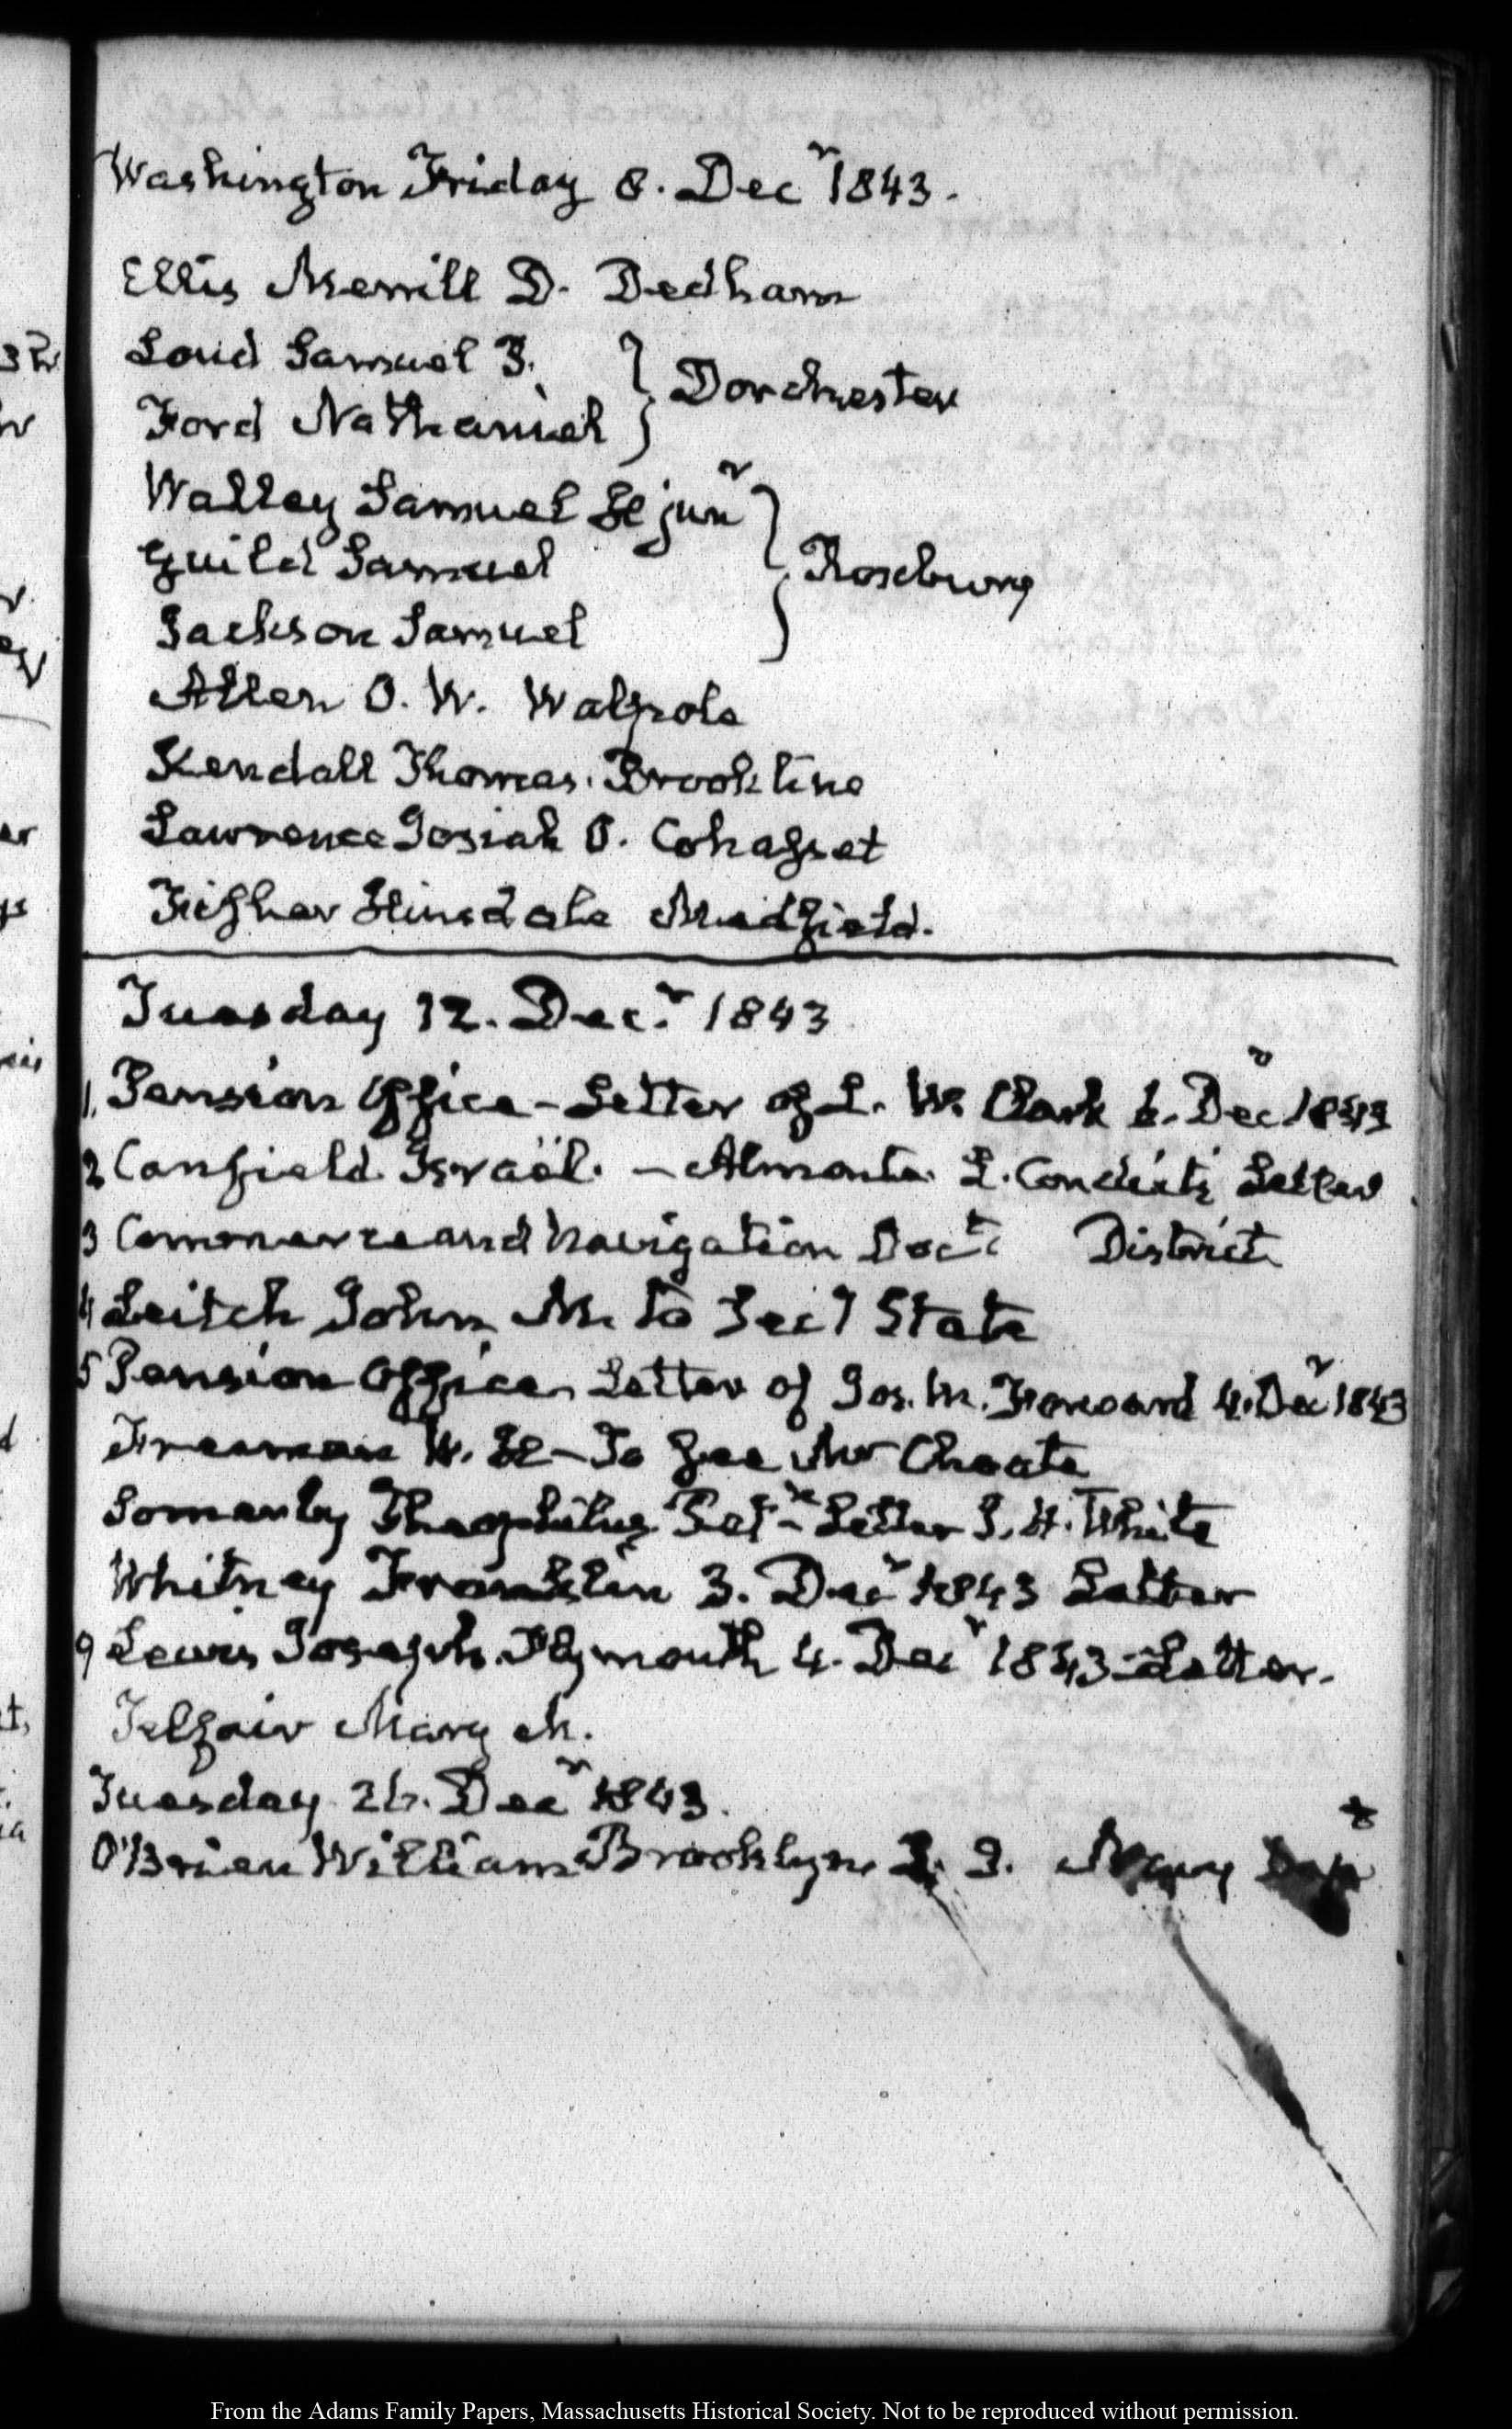 Washington Friday 8. Decr 1843.
Ellis Merrill D. Dedham
Loud Samuel P. } Dorchester
Ford Nathaniel
Walley Samuel H junr
Guild Samuel } Roxbury
Jackson Samuel
Allen O. W. Walpole
Kendall Thomas. Brookline
Lawrence Josiah O. Cohasset
Fisher Hinsdale Medfield.
Tuesday 12. Decr 1843
1. Pension Office - Letter of L. W. Clark 6. Decr 1843
2 Canfield Israël. - L. Condict's Letter
3 Commerce and Navigation Doctt District
4 Leitch John M. to Secy State
5 Pension Office Letter of Jos. M. 4. Decr 1843
Freeman W. H - To see Mr Choate
Theophilus Petn - Letter J. H. White
Whitney Franklin 3. Decr 1843 Letter
9 Lewis Joseph. Plymouth 4. Decr 1843 Letter.
Telfair Mary M.
Tuesday 26. Decr 1843.
O'Brien William Brooklyn L. I. Navy Dept
From the Adams Family Papers, Massachusetts Historical Society. Not to be reproduced without permission.